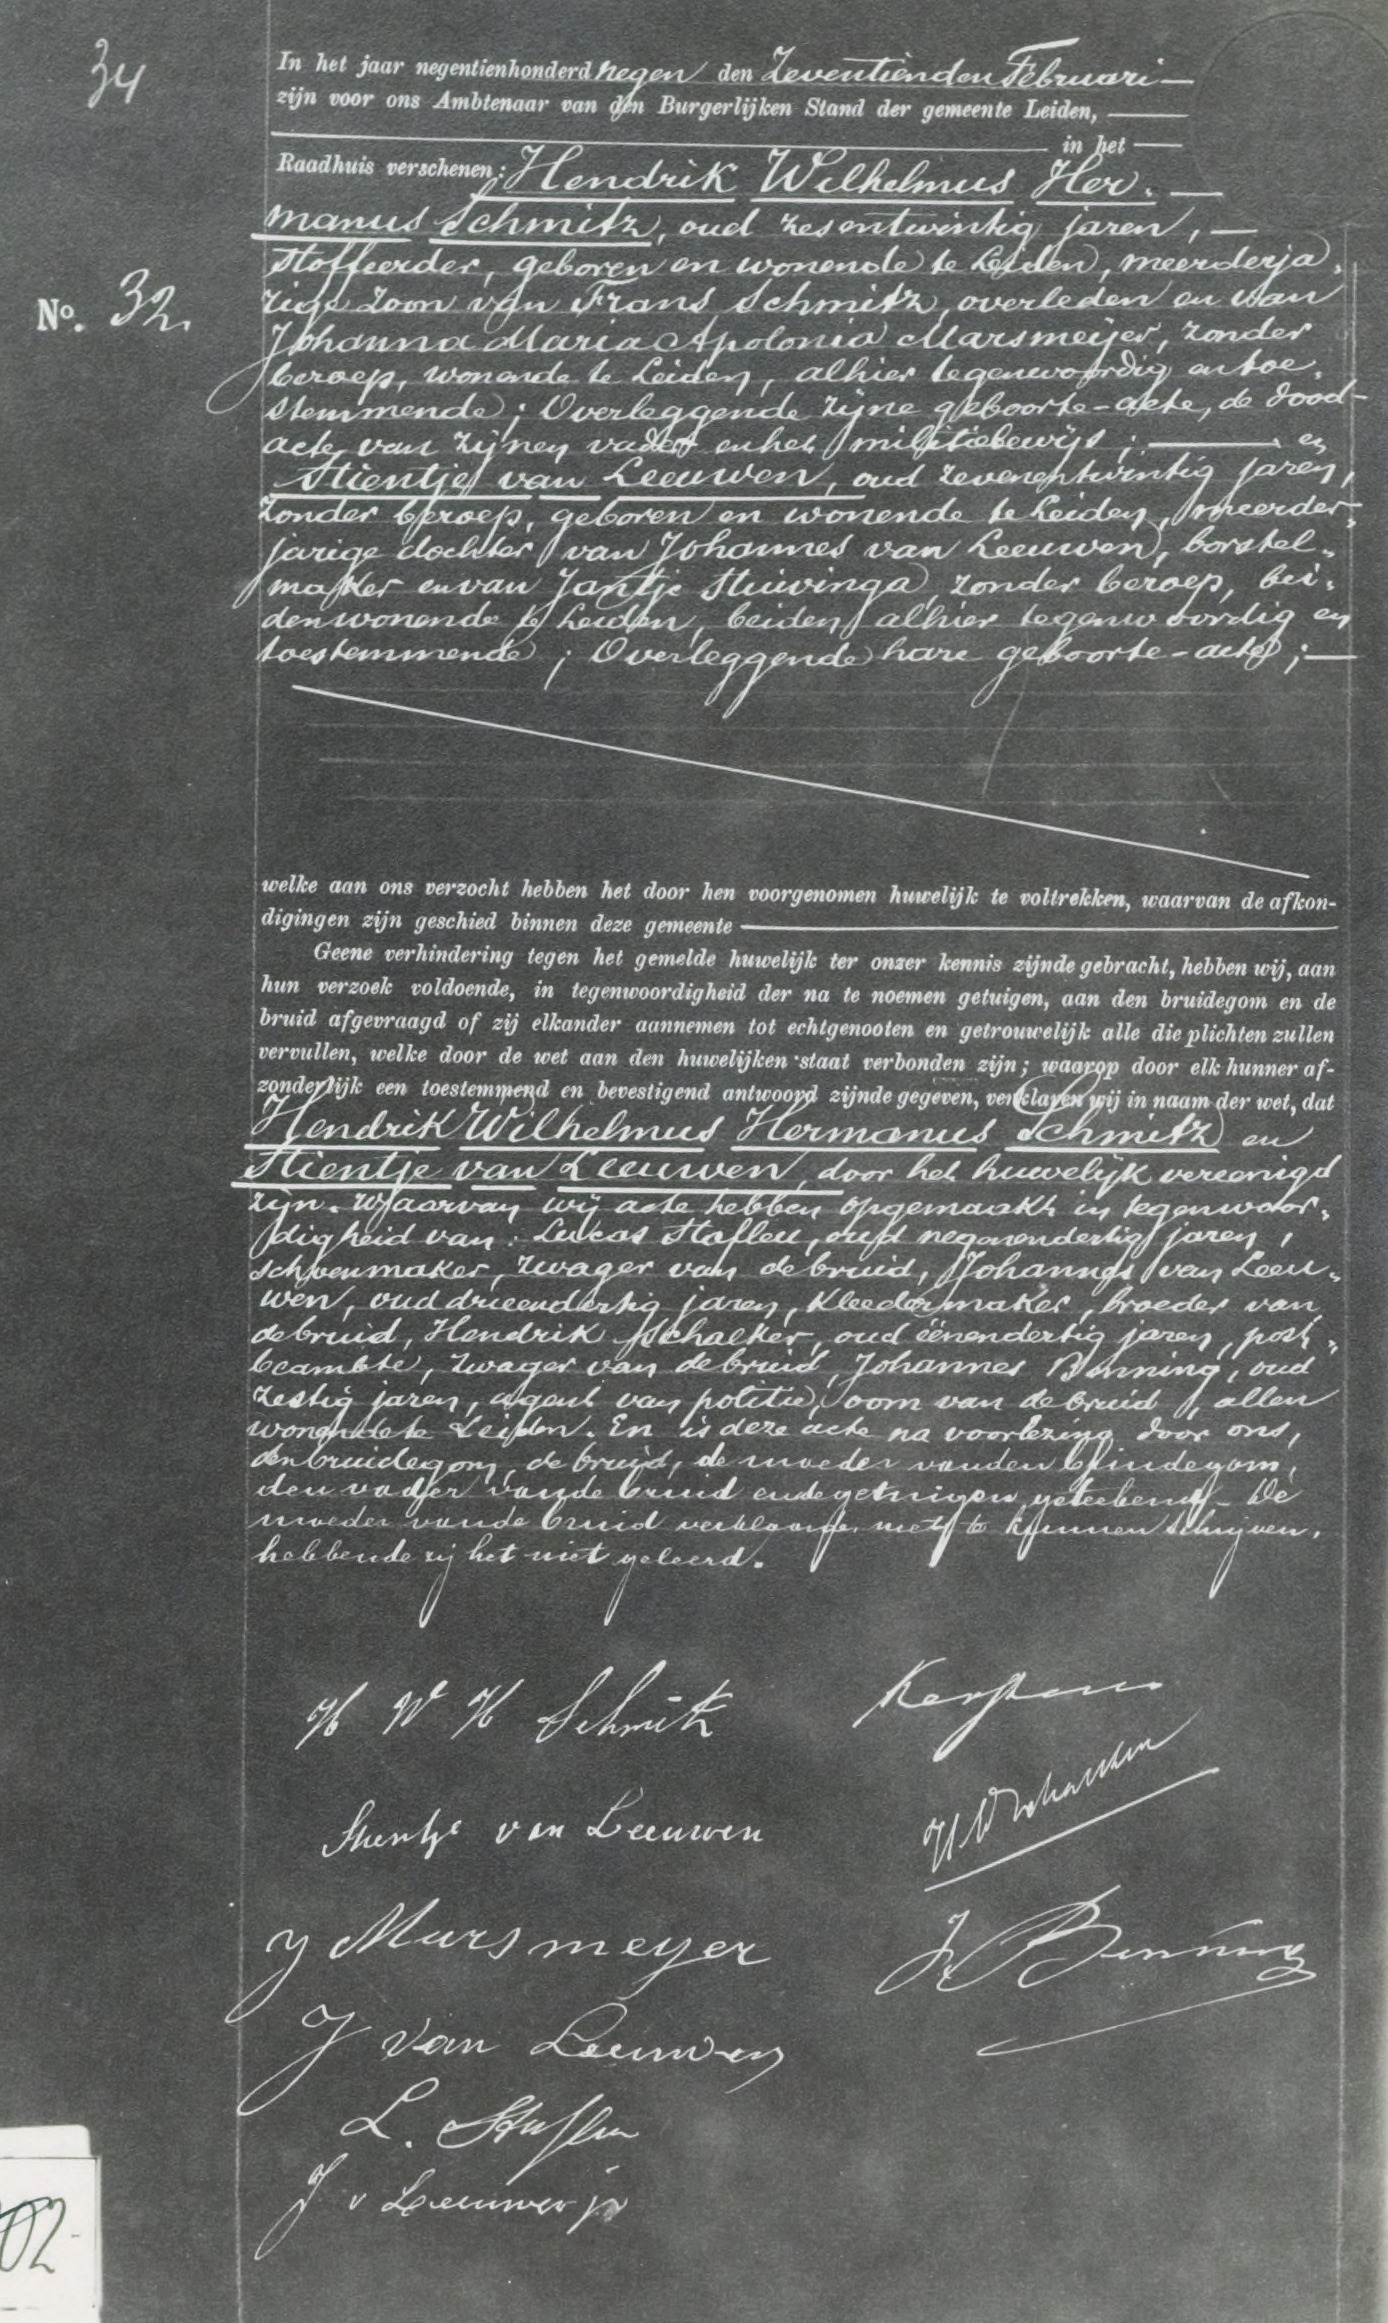 34
In het jaar negentienhonderd negen den Zeventienden Februari —
zijn voor ons Ambtenaar van den Burgerlijken Stand der gemeente Leiden, —
in het —
Raadhuis verschenen: Hendrik Wilhelmus Her. —
manus Schmitz, oud zesentwintig jaren, —
stoffeerder, geboren en wonende te Leiden, meerderja.
No. 32.
rige zoon van Frans Schmitz, overleden en van
Johanna Maria Apolonia Marsmeijer, zonder
beroep, wonende te Leiden, alhier tegenwoordig en toe.
stemmende; Overleggende zijne geboorte-acte, de dood-
acte van zijnen vader en het militiebewijs; — en
Stientje van Leeuwen, oud zevenentwintig jaren,
zonder beroep, geboren en wonende te Leiden, meerder-
jarige dochter van Johannes van Leeuwen, borstel-
maker en van Jantje Stuivinga, zonder beroep, bei-
den wonende te Leiden, beiden alhier tegenwoordig en
toestemmende; Overleggende hare geboorte-acte; —
welke aan ons verzocht hebben het door hen voorgenomen huwelijk te voltrekken, waarvan de afkon-
digingen zijn geschied binnen deze gemeente —
Geene verhindering tegen het gemelde huwelijk ter onzer kennis zijnde gebracht, hebben wij, aan
hun verzoek voldoende, in tegenwoordigheid der na te noemen getuigen, aan den bruidegom en de
bruid afgevraagd of zij elkander aannemen tot echtgenooten en getrouwelijk alle die plichten zullen
vervullen, welke door de wet aan den huwelijken staat verbonden zijn; waarop door elk hunner af-
zonderlijk een toestemmend en bevestigend antwoord zijnde gegeven, verklaren wij in naam der wet, dat
Hendrik Wilhelmus Hermanus Schmitz en
Stientje van Leeuwen, door het huwelijk vereenigd
zijn. Waarvan wij acte hebben opgemaakt in tegenwoor-
digheid van: Lucas Stafleu, oud negenendertig jaren,
schoenmaker, zwager van de bruid, Johannes van Leeu-
wen, oud drieendertig jaren, kleedermaker, broeder van
de bruid, Hendrik Schalker, oud éénendertig jaren, post-
beambte, zwager van de bruid, Johannes Benning, oud
zestig jaren, agent van politie, oom van de bruid, allen
wonende te Leiden. En is deze acte na voorlezing door ons,
den bruidegom, de bruid, de moeder van den bruidegom,
den vader van de bruid en de getuigen geteekend. — De
moeder van de bruid verklaarde niet te kunnen schrijven,
hebbende zij het niet geleerd.
H W H Schmitz
Stientje van Leeuwen
J Marsmeyer
J. Benning
J van Leeuwen
L. Stafleu
J v Leeuwen jr
02